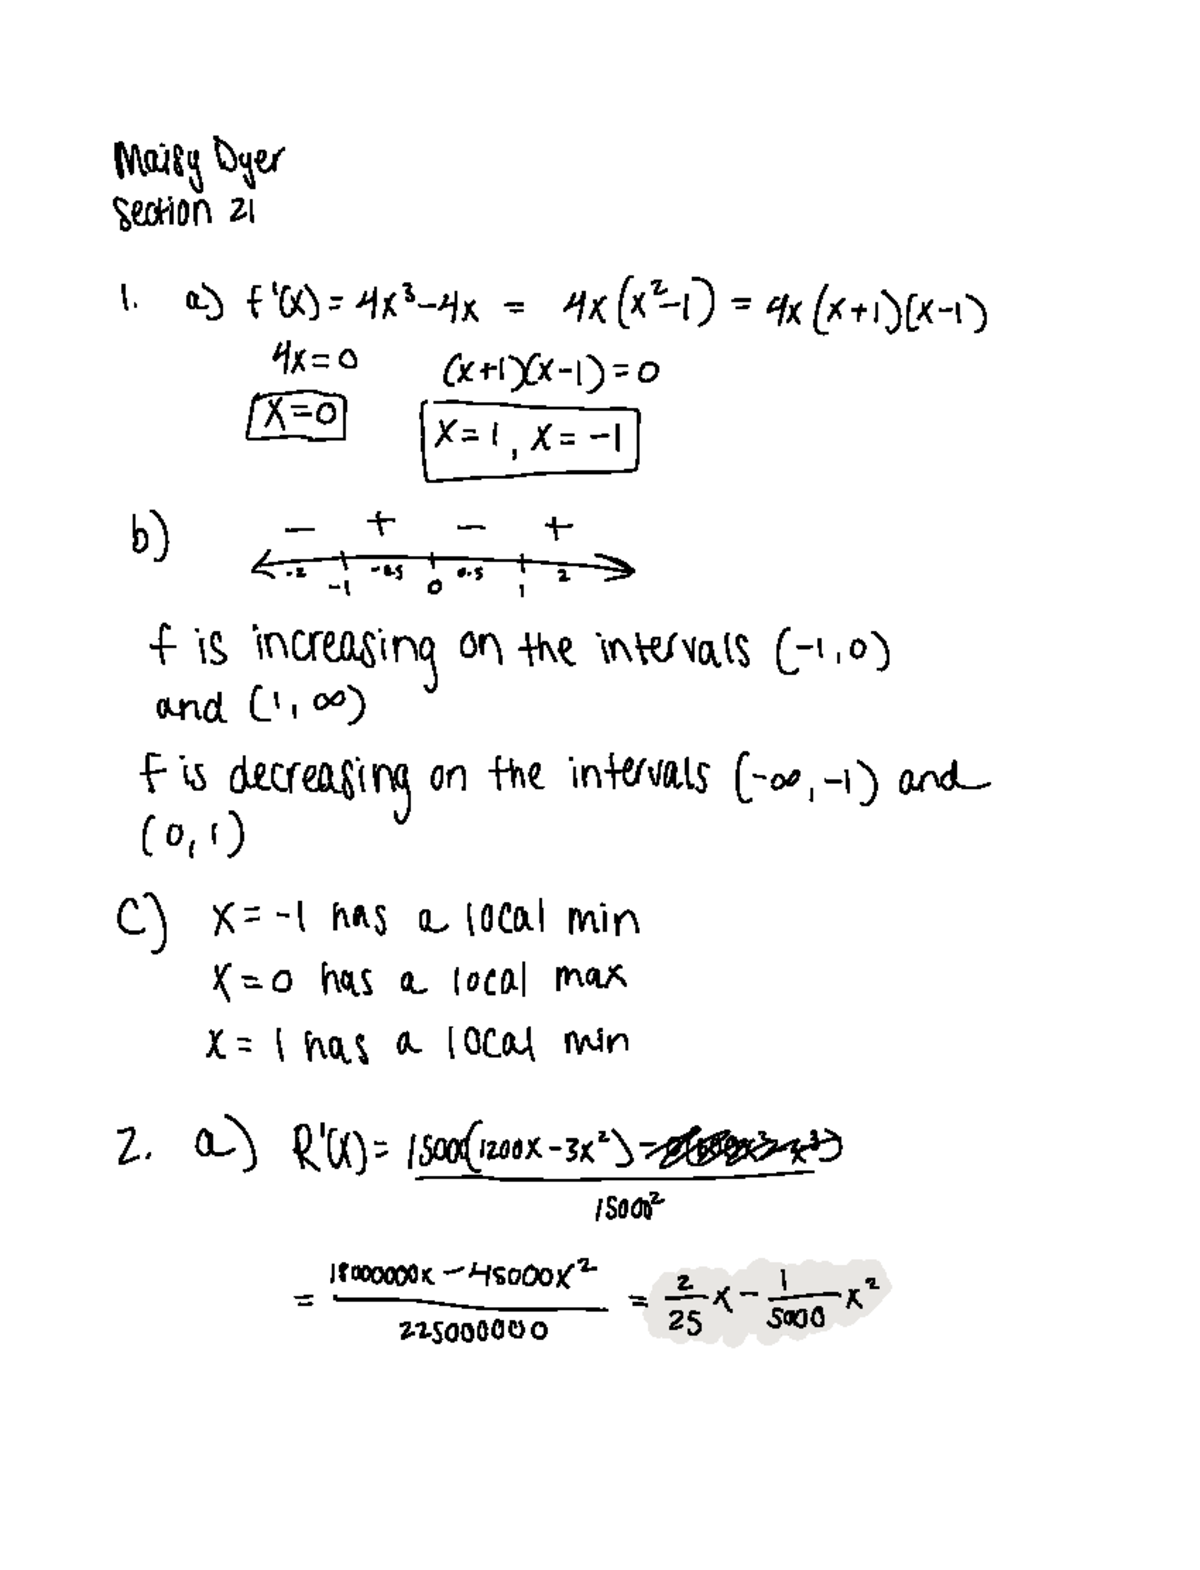 Maisy Dyer
Section 21
1. a) f'(x) = 4x³-4x = 4x(x²-1) = 4x(x+1)(x-1)
4x=0 (x+1)(x-1)=0
x=0 x=1, x=-1
b) − + − +
-2 -1 -0.5 0 0.5 1 2
f is increasing on the intervals (-1,0)
and (1,∞)
f is decreasing on the intervals (-∞,-1) and
(0,1)
c) x=-1 has a local min
x=0 has a local max
x=1 has a local min
2. a) R'(x)= 15000(1200x-3x²)-
15000²
= 18000000x-45000x² / 225000000 = 2/25 x - 1/5000 x²